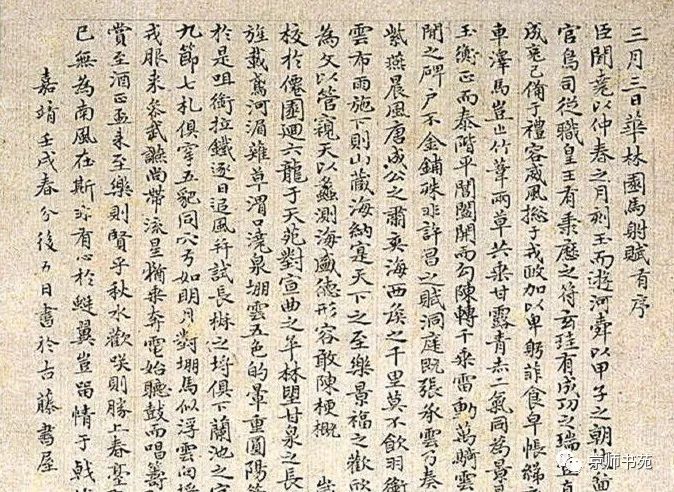 三月三日華林園馬射賦有序
臣聞堯以仲春之月刻玉而遊河舜以甲子之朝披
官鳥司從職皇王有秉歷之符玄珪有成功之瑞豈
成竟已備于禮容威風總于戎政加以卑躬菲食皁帳綈
車澤馬豈止竹葦兩草共垂甘露青赤二氣同為景
玉衡正而泰階平閶闔開而勾陳轉千乘雷動萬騎雲
聞之碑戶不金鋪殊非許昌之賦洞庭既張承雲乃奏
紫燕晨風唐成公之肅爽海西侯之千里莫不飲羽銜
雲布雨施下則山藏海納寔天下之至樂景福之歡欣
為文以管窺天以蠡測海盛德形容敢陳梗概 歲
校於僊園迴六龍于天苑對宣曲之平林望甘泉之長
旌載鳶河湄薙草渭口澆泉堋雲五色的暈重圓陽管
於是咀銜拉鐵逐日追風并試長楸之埒俱下蘭池之宮
九節七札俱穿五豝同穴弓如明月對堋馬似浮雲向埒
戎服來參武讌尚帶流星猶乘奔電始聽鼓而唱籌
賞至酒正盃來至樂則賢乎秋水歡咲則勝上春臺
已無為南風在斯非有心於蜓翼豈留情于戟
嘉靖壬戌春分後五日書於古藤書屋
京师书苑